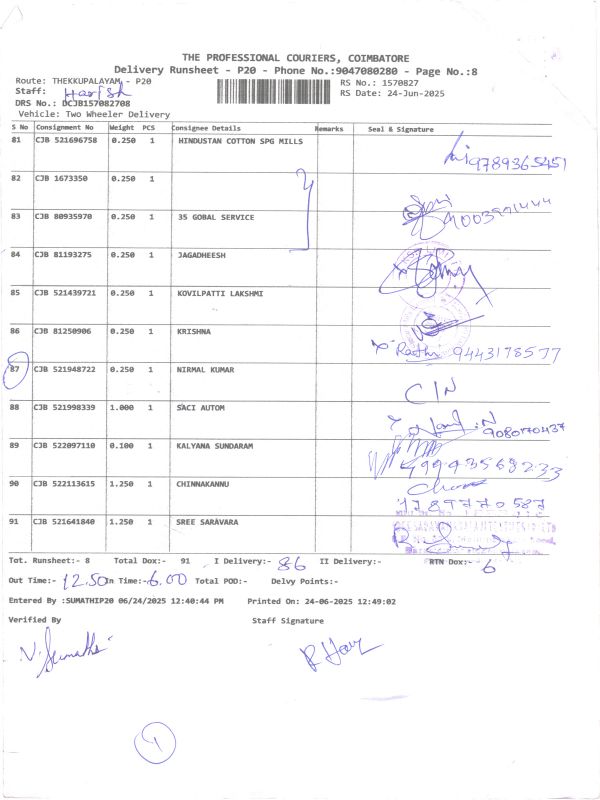 THE PROFESSIONAL COURIERS, COIMBATORE
Delivery Runsheet - P20 - Phone No.:9047080280 - Page No.:8
Route: THEKKUPALAYAM - P20 RS No.: 1570827
Staff: Harish RS Date: 24-Jun-2025
DRS No.: DCJB157082708
Vehicle: Two Wheeler Delivery
S No Consignment No Weight PCS Consignee Details Remarks Seal & Signature
81 CJB 521696758 0.250 1 HINDUSTAN COTTON SPG MILLS 9789365451
82 CJB 1673350 0.250 1
83 CJB 80935970 0.250 1 35 GOBAL SERVICE
84 CJB 81193275 0.250 1 JAGADHEESH
85 CJB 521439721 0.250 1 KOVILPATTI LAKSHMI
86 CJB 81250906 0.250 1 KRISHNA Rathi 9443178577
87 CJB 521948722 0.250 1 NIRMAL KUMAR C/N
88 CJB 521998339 1.000 1 SACI AUTOM 9080170437
89 CJB 522097110 0.100 1 KALYANA SUNDARAM
90 CJB 522113615 1.250 1 CHINNAKANNU
91 CJB 521641840 1.250 1 SREE SARAVARA
Tot. Runsheet:- 8 Total Dox:- 91 I Delivery:- 86 II Delivery:- RTN Dox:- 6
Out Time:- 12.50 In Time:- 6.00 Total POD:- Delvy Points:-
Entered By :SUMATHIP20 06/24/2025 12:40:44 PM Printed On: 24-06-2025 12:49:02
Verified By Staff Signature